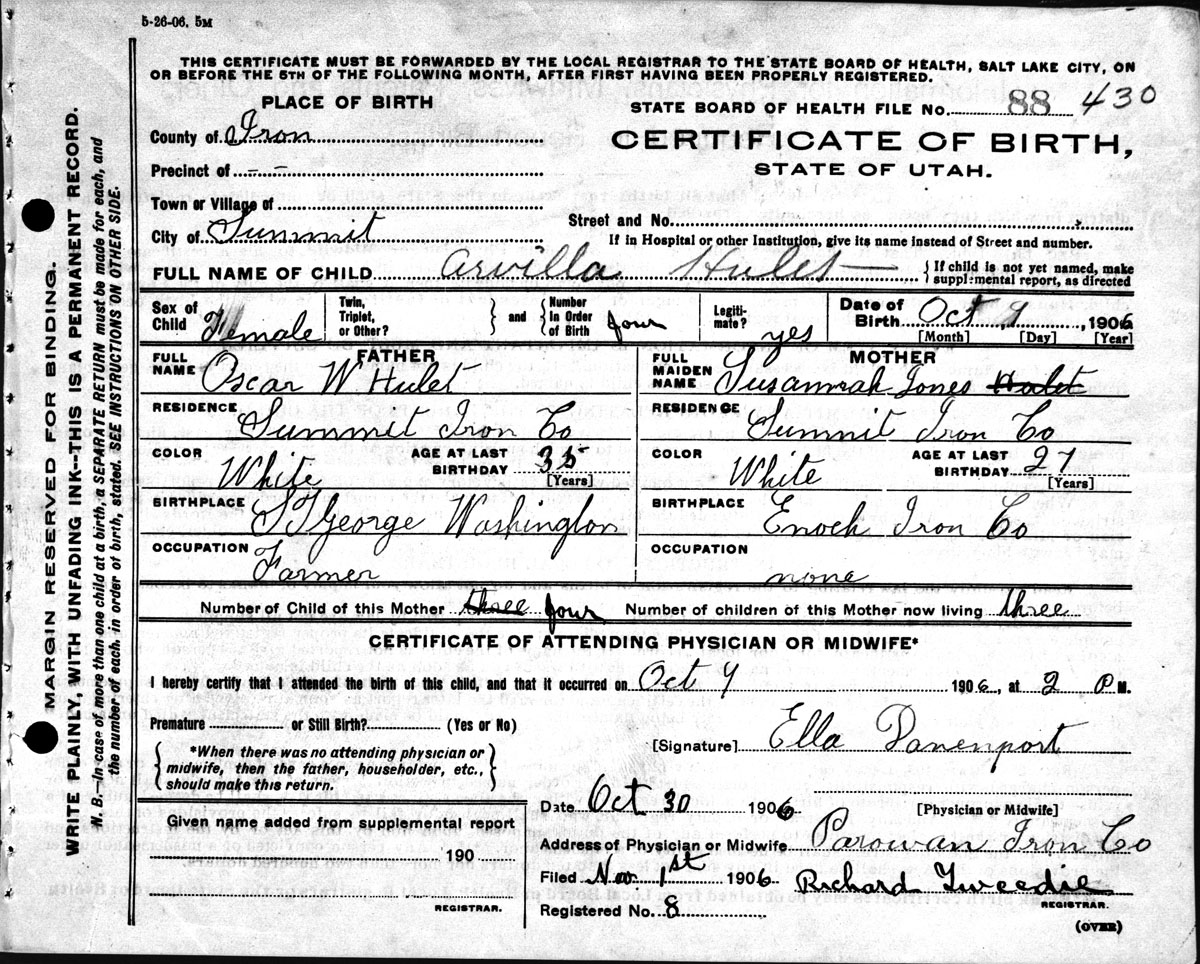 5-26-06. 5M
THIS CERTIFICATE MUST BE FORWARDED BY THE LOCAL REGISTRAR TO THE STATE BOARD OF HEALTH, SALT LAKE CITY, ON
OR BEFORE THE 5TH OF THE FOLLOWING MONTH, AFTER FIRST HAVING BEEN PROPERLY REGISTERED.
PLACE OF BIRTH
STATE BOARD OF HEALTH FILE No. 88 430
County of Iron
CERTIFICATE OF BIRTH,
Precinct of - -
STATE OF UTAH.
Town or Village of
Street and No.
City of Summit
If in Hospital or other Institution, give its name instead of Street and number.
FULL NAME OF CHILD Arvilla Hulet { If child is not yet named, make supplemental report, as directed
Sex of Child Female Twin, Triplet, or Other? } and { Number In Order of Birth four Legiti- mate? yes Date of Birth Oct 9, 1906
[Month] [Day] [Year]
FATHER
MOTHER
FULL NAME Oscar W. Hulet
FULL MAIDEN NAME Susannah Jones Hulet
RESIDENCE Summit Iron Co
RESIDENCE Summit Iron Co
COLOR White AGE AT LAST BIRTHDAY 35 [Years]
COLOR White AGE AT LAST BIRTHDAY 27 [Years]
BIRTHPLACE St George Washington
BIRTHPLACE Enoch Iron Co
OCCUPATION Farmer
OCCUPATION none
Number of Child of this Mother three four Number of children of this Mother now living three
CERTIFICATE OF ATTENDING PHYSICIAN OR MIDWIFE*
I hereby certify that I attended the birth of this child, and that it occurred on Oct 9 1906, at 2 P M.
Premature or Still Birth? (Yes or No)
[Signature] Ella Davenport
{ *When there was no attending physician or midwife, then the father, householder, etc., should make this return. }
Date Oct 30 1906 [Physician or Midwife]
Given name added from supplemental report
190
REGISTRAR.
Address of Physician or Midwife Parowan Iron Co
Filed Nov. 1st 1906 Richard Tweedie
REGISTRAR.
Registered No. 8
(OVER)
MARGIN RESERVED FOR BINDING.
WRITE PLAINLY, WITH UNFADING INK--THIS IS A PERMANENT RECORD.
N. B.--In case of more than one child at a birth, a SEPARATE RETURN must be made for each, and
the number of each, in order of birth, stated. SEE INSTRUCTIONS ON OTHER SIDE.